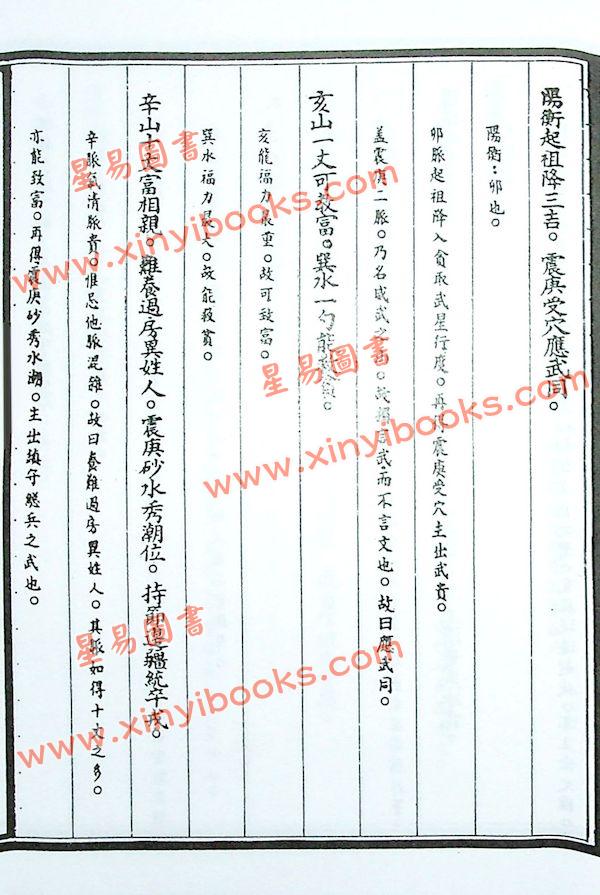 陽衡起祖降三吉。震庚受穴應武同。
陽衡：卯也。
卯脈起祖降入貪取武星行度。再得震庚受穴主出武貴。
盖震庚二脈。乃名威武之。故言武而不言文也。故曰應武同。
亥山一丈可致富。巽水一勺能救貧。
亥龍福力最重。故可致富。
巽水福力最大。故能救貧。
辛山十丈富相親。難養過房異姓人。震庚砂水秀潮位。持節邊疆統卒戎。
辛脈氣清脈貴。惟忌他脈混雜。故曰養難過房異姓人。其脈如得十丈之多。
亦能致富。再得震庚砂秀水湖。主出鎮守總兵之武也。
星易圖書
www.xinyibooks.com
星易圖書
www.xinyibooks.com
星易圖書
www.xinyibooks.com